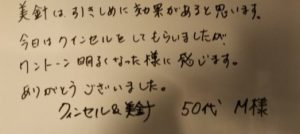 美針は、引きしめに効果があると思います。
今日はクインセルをしてもらいましたが
ワントーン明るくなった様に感じます。
ありがとうございました。
クインセル&美針 50代 M様